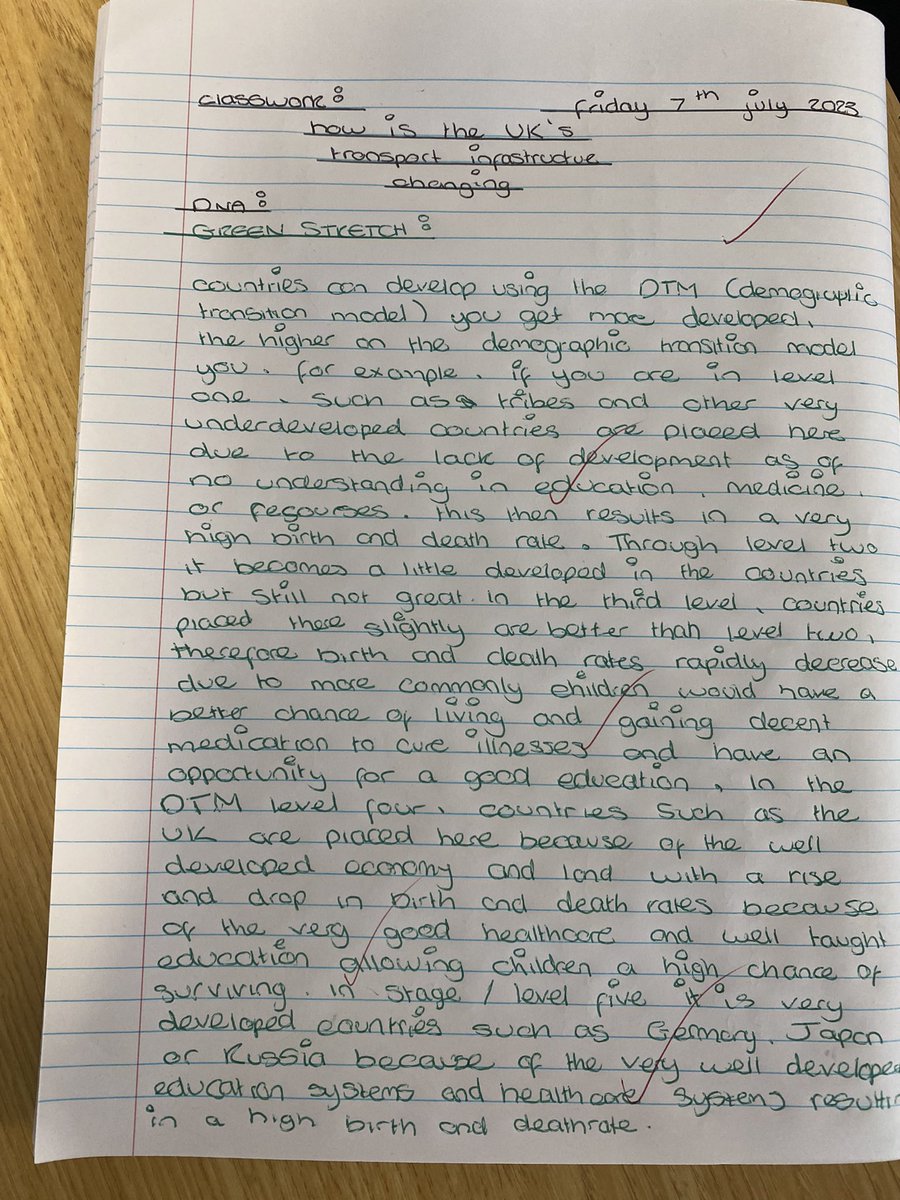 classwork:
friday 7th july 2023
how is the UK's
transport infastructue
changing
DNA:
GREEN STRETCH:
countries can develop using the DTM (demographic
transition model) you get more developed,
the higher on the demographic transition model
you. for example, if you are in level
one, such as tribes and other very
underdeveloped countries are placed here
due to the lack of development as of
no understanding in education, medicine,
or recourses. This then results in a very
high birth and death rate. Through level two
it becomes a little developed in the countries
but still not great. in the third level, countries
placed there slightly are better than level two,
therefore birth and death rates rapidly decrease
due to more commonly children would have a
better chance of living and gaining decent
medication to cure illnesses and have an
opportunity for a good education, in the
DTM level four, countries such as the
UK are placed here because of the well
developed economy and land with a rise
and drop in birth and death rates because
of the very good healthcare and well taught
education allowing children a high chance of
surviving. in stage / level five it is very
developed countries such as Germany, Japan
or Russia because of the very well develope
education systems and healthcare systems resultin
in a high birth and deathrate.